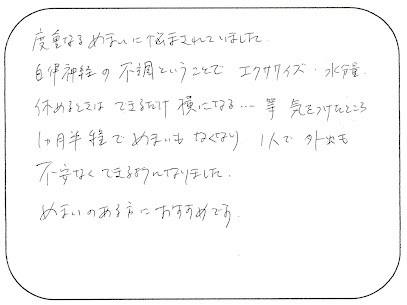 度重なるめまいに悩まされていました.
自律神経の不調ということで エクササイズ・水分量.
休めるときは できるだけ 横になる… 等 気をつけたところ
1ヵ月半程で めまいも なくなり 1人で 外出も
不安なく できる様になりました.
めまいのある方に おすすめです.